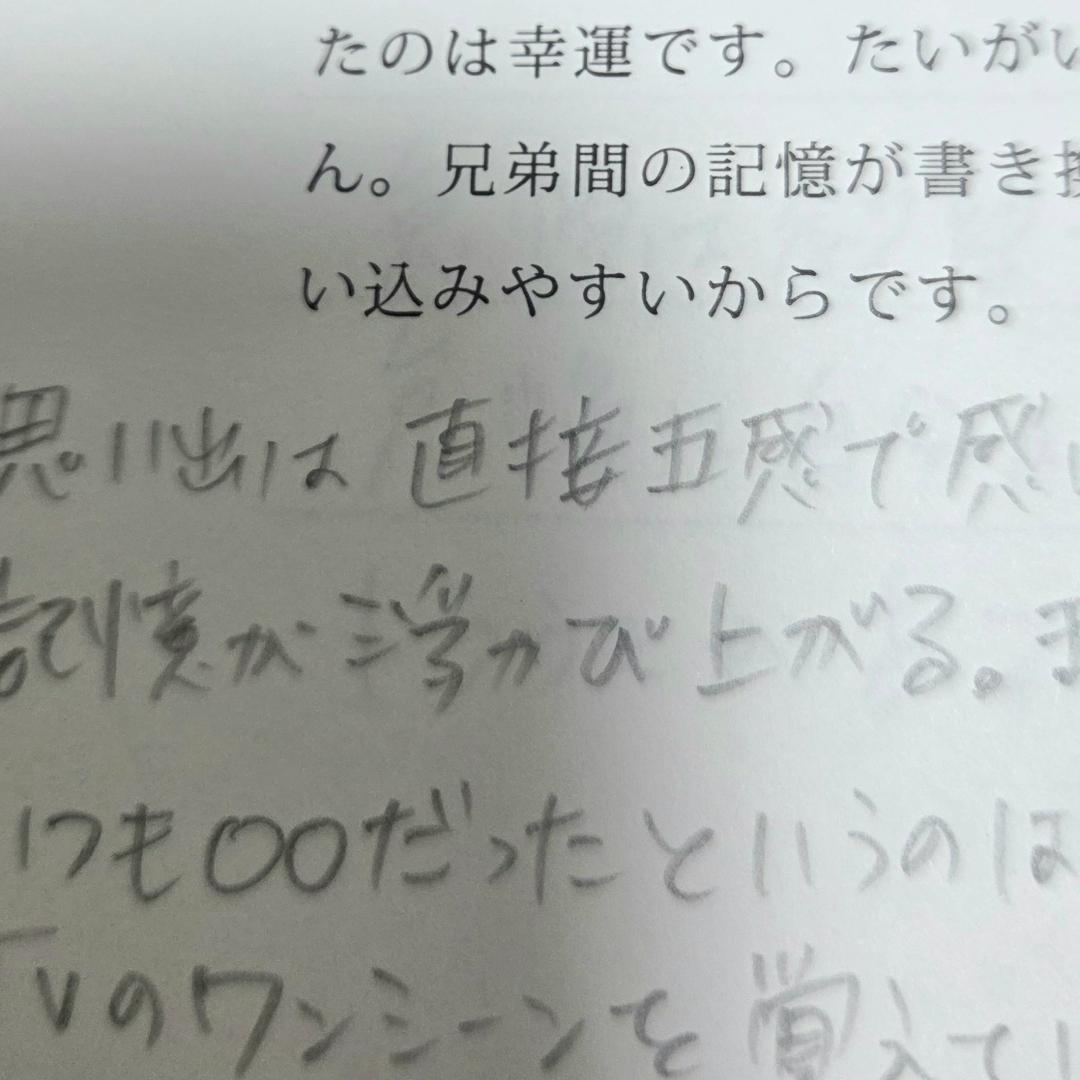 たのは幸運です。たいがい
ん。兄弟間の記憶が書き換
い込みやすいからです。
思い出は直接五感で感じ
記憶が浮かび上がる。
いつも〇〇だったというのは
TVのワンシーンを覚えてい